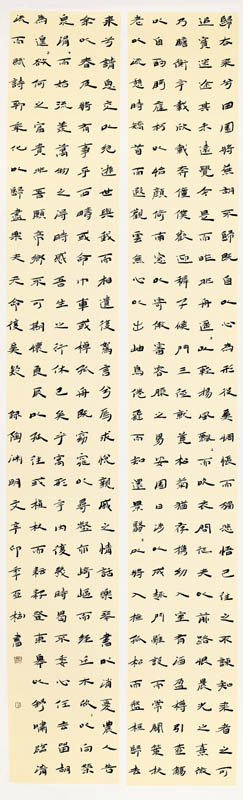 歸去來兮田園將蕪胡不歸既自以心為形役奚惆悵而獨悲悟已往之不諫知來者之可
追實迷途其未遠覺今是而昨非舟遙遙以輕颺風飄飄而吹衣問征夫以前路恨晨光之熹微
乃瞻衡宇載欣載奔僮僕歡迎稚子候門三徑就荒松菊猶存攜幼入室有酒盈樽引壺觴
以自酌眄庭柯以怡顏倚南窗以寄傲審容膝之易安園日涉以成趣門雖設而常關策扶
老以流憩時矯首而遐觀雲無心以出岫鳥倦飛而知還景翳翳以將入撫孤松而盤桓歸去
來兮請息交以絕遊世與我而相違復駕言兮焉求悅親戚之情話樂琴書以消憂農人告
余以春及將有事乎西疇或命巾車或棹孤舟既窈窕以尋壑亦崎嶇而經丘木欣欣以向榮
泉涓涓而始流羨萬物之得時感吾生之行休已矣乎寓形宇內復幾時曷不委心任去留胡
為遑遑欲何之富貴非吾願帝鄉不可期懷良辰以孤往或植杖而耘耔登東皋以舒嘯臨清
流而賦詩聊乘化以歸盡樂夫天命復奚疑 錄陶淵明文辛卯年亞楠書